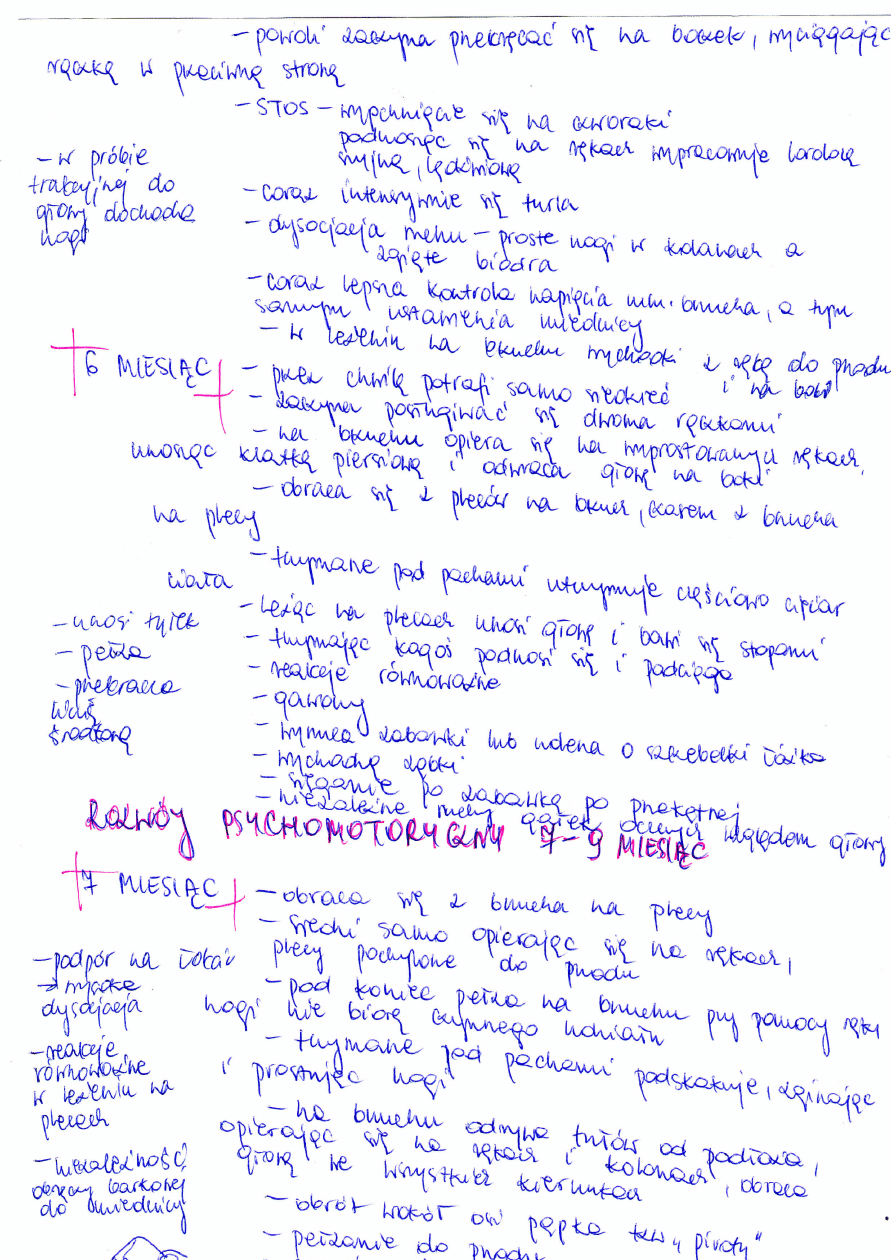 - powoli zaczyna przekręcać się na boczek, wyciągając
rączkę w przeciwną stronę
- STOS - wypchnięcie się na czworaki
podnosząc się na rękach wypracowuje lordozę
szyjną, lędźwiową
- w próbie
trakcyjnej do
głowy dochodzą
nogi
- coraz intensywnie się turla
- dysocjacja ruchu - proste nogi w kolanach a
zgięte biodra
- coraz lepsza kontrola napięcia mm. brzucha, a tym
samym ustawienia miednicy
- w leżeniu na brzuchu wychodzi z ręką do przodu
i na boki
6 MIESIĄC
- przez chwilę potrafi samo siedzieć
- zaczyna posługiwać się dwoma rączkami
- na brzuchu opiera się na wyprostowanych rękach,
unosząc klatkę piersiową i odwraca głowę na boki
- obraca się z pleców na brzuch, czasem z brzucha
na plecy
- trzymane pod pachami utrzymuje częściowo ciężar
ciała
- leżąc na plecach unosi głowę i bawi się stopami
- trzymając kogoś podnosi się i podciąga
- reakcje równoważne
- gaworzy
- wyrzuca zabawki lub uderza o szczebelki łóżka
- wychodzą ząbki
- sięganie po zabawkę po przekątnej
- niezależne ruchy gałek ocznych względem głowy
- unosi tyłek
- pełza
- przekracza
linię
środkową
ROZWÓJ PSYCHOMOTORYCZNY 7-9 MIESIĄC
7 MIESIĄC
- obraca się z brzucha na plecy
- siedzi samo opierając się na rękach,
plecy pochylone do przodu
- pod koniec pełza na brzuchu przy pomocy ręki
nogi nie biorą czynnego udziału
- trzymane pod pachami podskakuje, zginając
i prostując nogi
- na brzuchu odrywa tułów od podłoża,
opierając się na rękach i kolanach, obraca
głowę we wszystkich kierunkach
- obrót wokół osi pępka tzw „pivoty"
- pełzanie do przodu
- podpór na łokciu
→ wysoka
dysocjacja
- reakcje
równoważne
w leżeniu na
plecach
- niezależność
obręczy barkowej
do miednicy